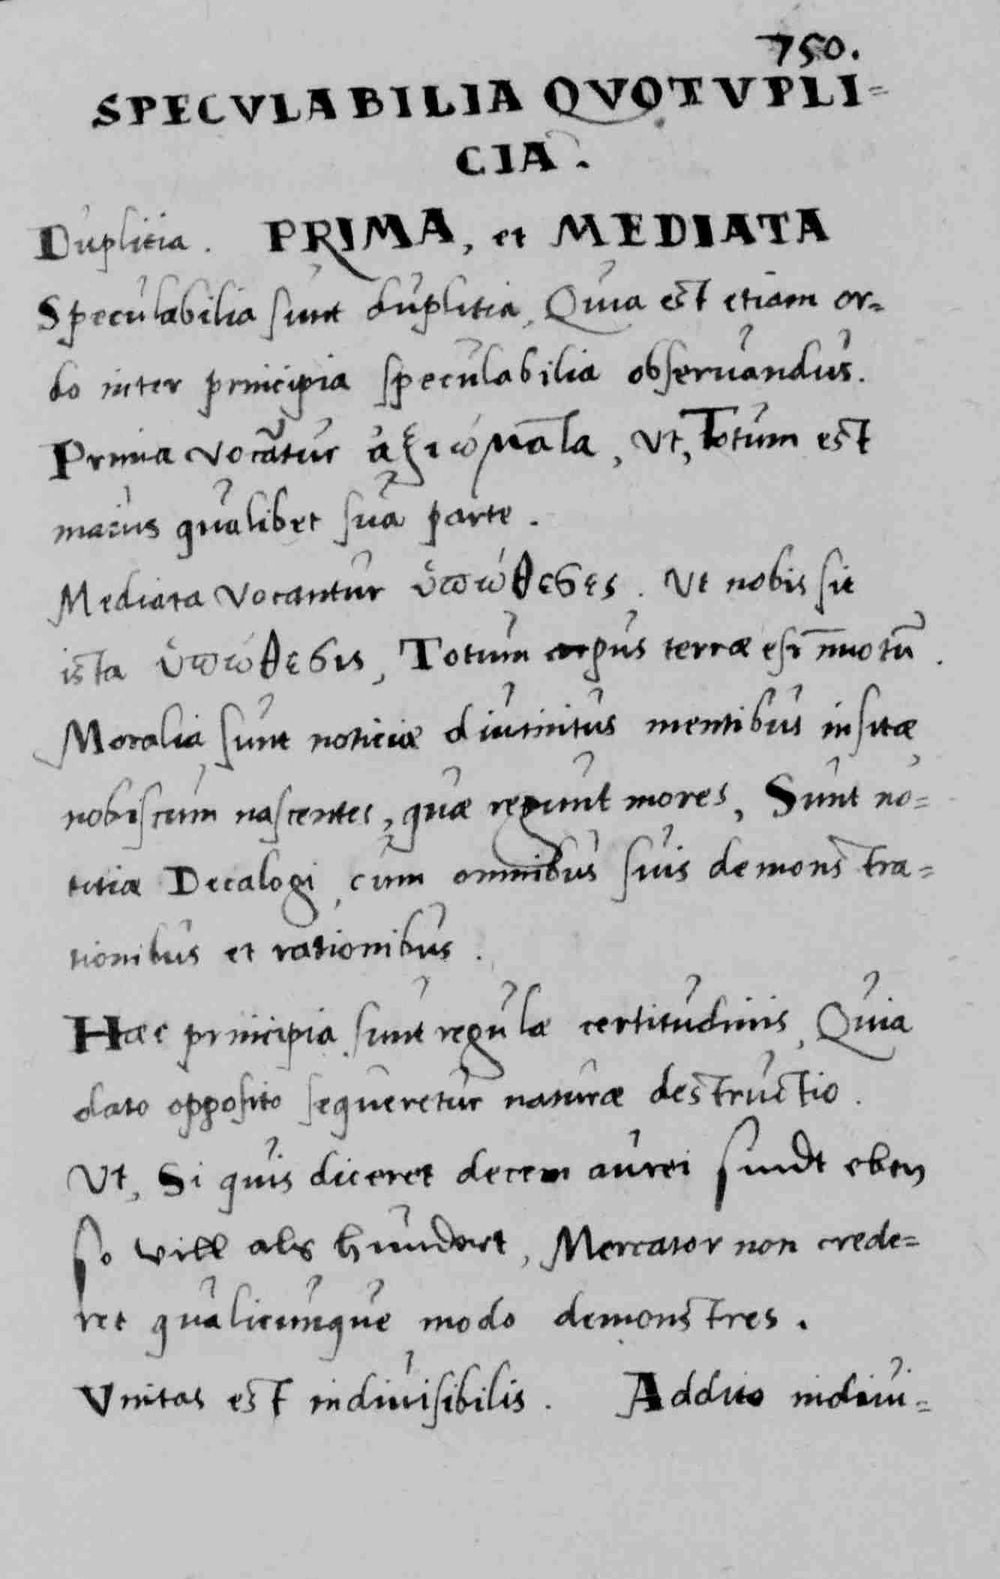 750.
SPECVLABILIA QVOTVPLI=
CIA.
Duplitia. PRIMA, et MEDIATA
Speculabilia sunt duplitia, Quia est etiam or=
do inter principia speculabilia obseruandus.
Prima vocãtur ἀξιώματα, Vt, Totum est
maius qualibet sua parte.
Mediata vocantur ὑπώθεσες. Vt nobis sit
ista ὑπώθεσις, Totum corpus terræ est im̄otū.
Moralia sunt noticiæ diuinitus mentibus insitæ,
nobiscum nascentes, quæ regunt mores, Sunt no=
titiæ Decalogi, cum omnibus suis demonstra=
tionibus et rationibus.
Haec principia sunt regulæ certitudinis, Quia
dato opposito sequeretur naturæ destructio.
Vt, Si quis diceret decem aurei sindt eben
so vill als hundert, Mercator non crede=
ret qualicunque modo demonstres.
Vnitas est indiuisibilis. Addito indiui=